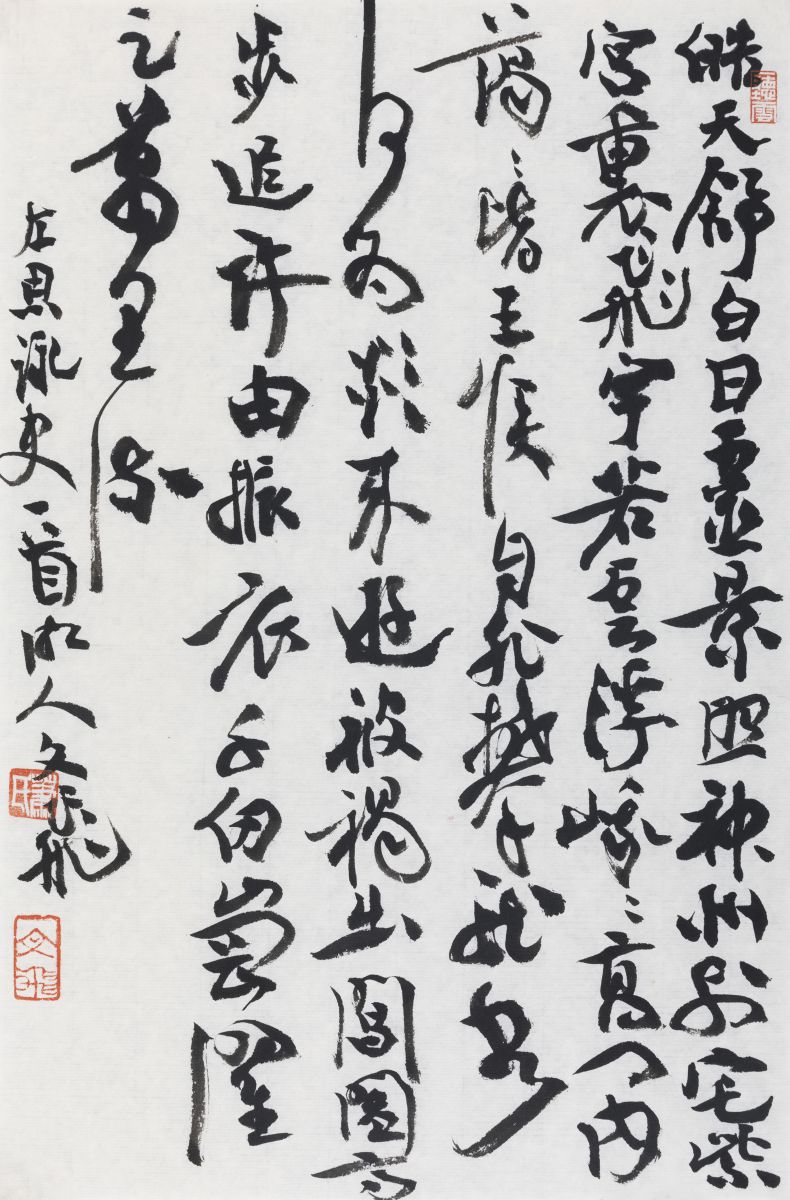 皓天舒白日靈景照神州列宅紫
宮裏飛宇若雲浮峨〻高門内
藹〻皆王侯自非攀龍客
何為欻来遊被褐出閶闔高
步追許由振衣千仞崗濯
足萬里流
左思詠史一首湘人文飛
蕭氏
文飛